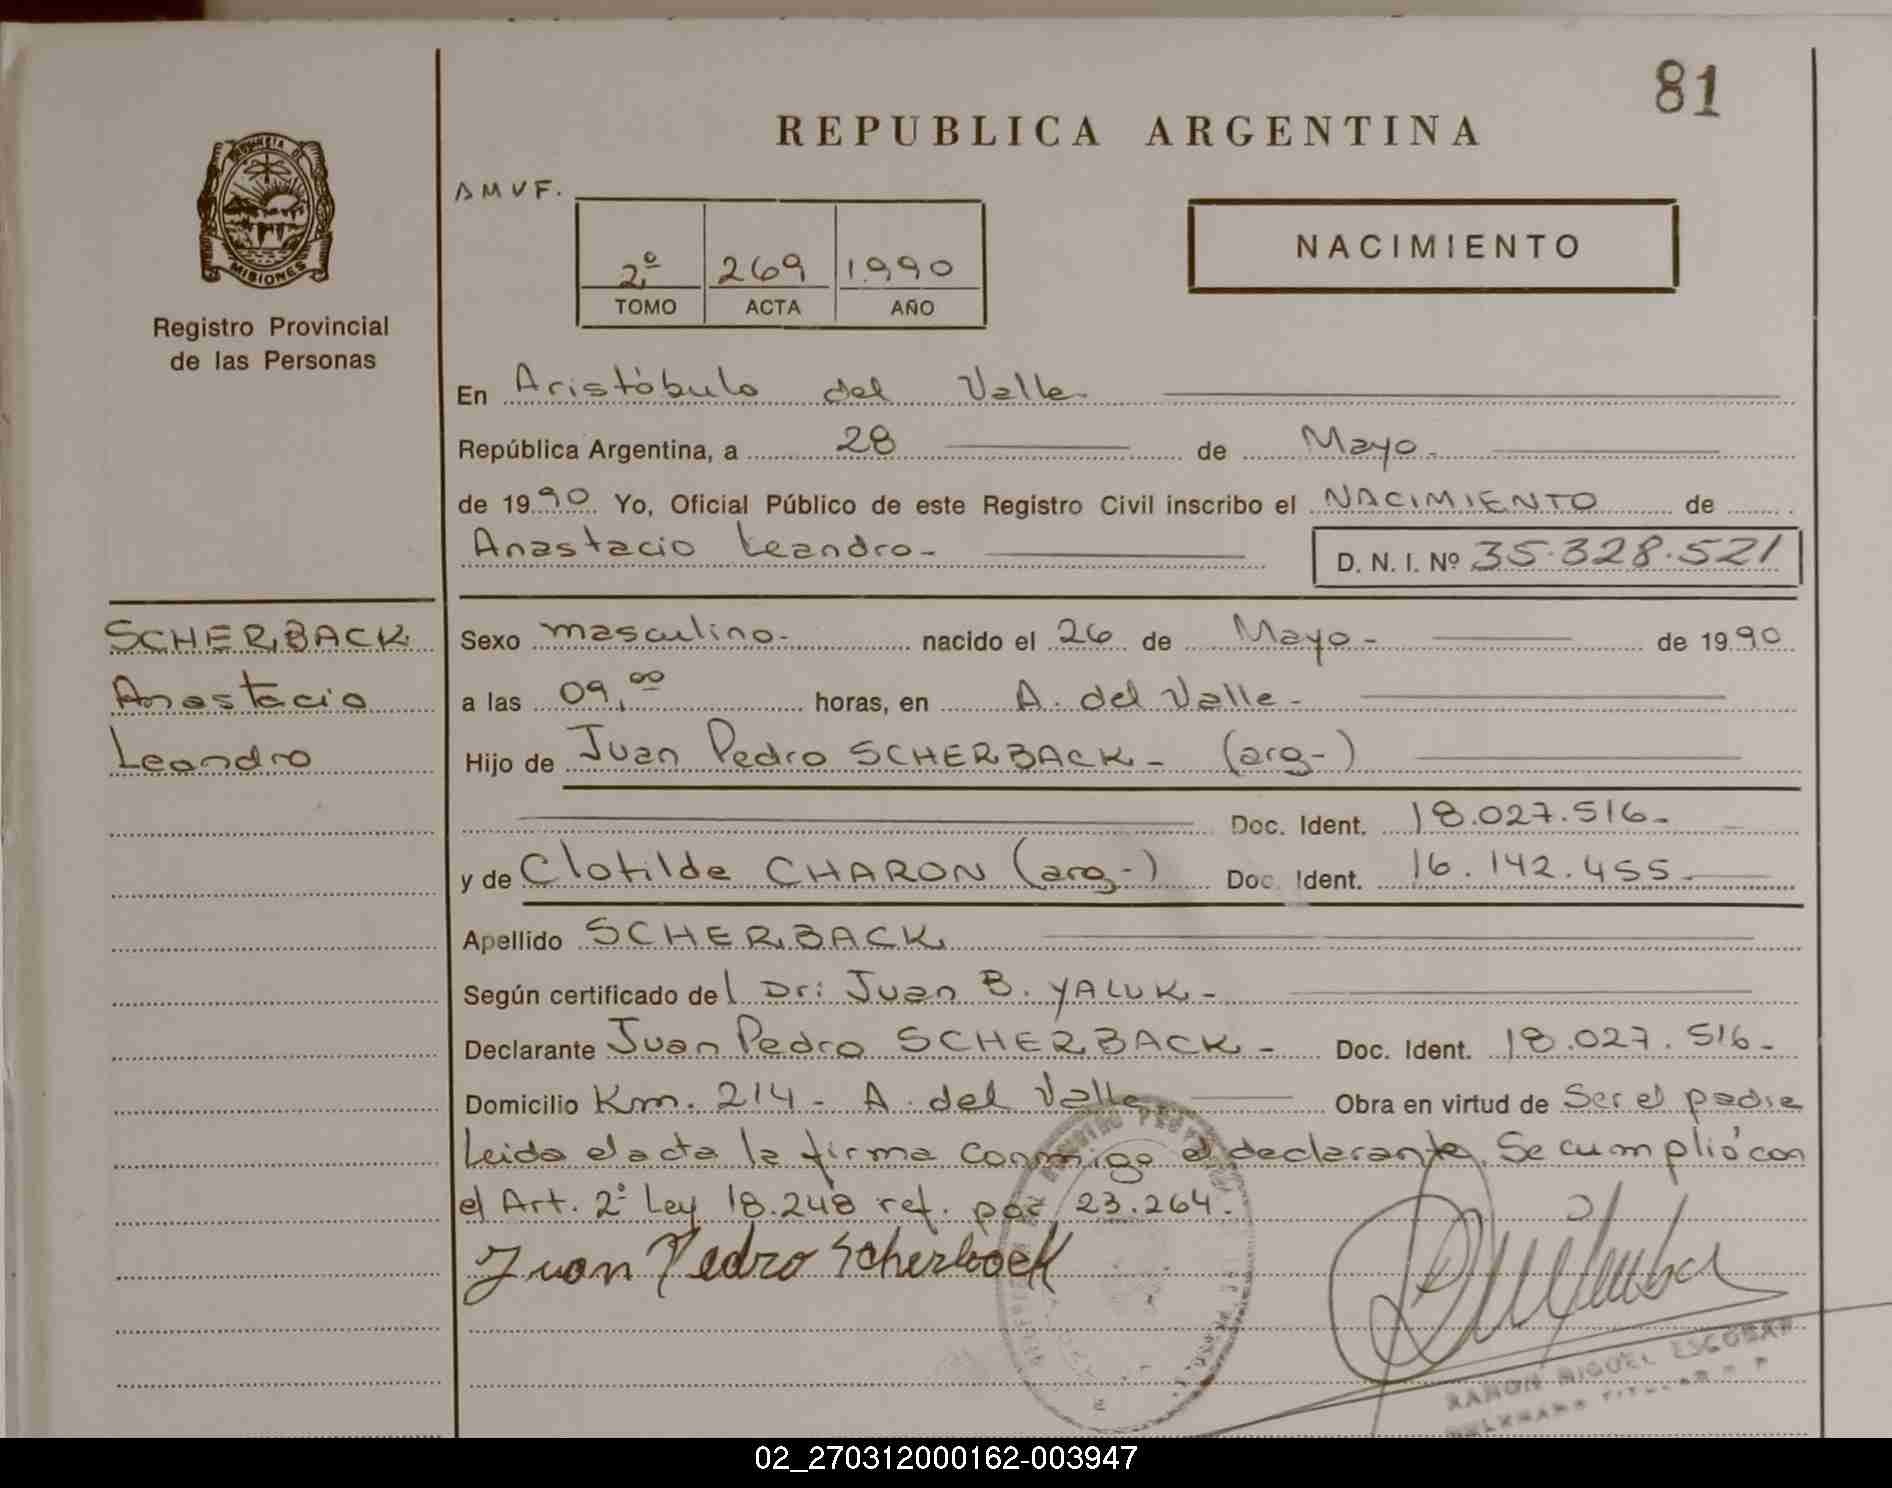 81
REPUBLICA ARGENTINA
PROVINCIA DE
MISIONES
Registro Provincial
de las Personas
AMVF.
2º 269 1990
TOMO ACTA AÑO
NACIMIENTO
En Aristóbulo del Valle
República Argentina, a 28 de Mayo.
de 1990 Yo, Oficial Público de este Registro Civil inscribo el NACIMIENTO de
Anastacio Leandro-
D. N. I. Nº 35.328.521
SCHERBACK
Anastacio
Leandro
Sexo masculino- nacido el 26 de Mayo- de 1990
a las 09,00 horas, en A. del Valle-
Hijo de Juan Pedro SCHERBACK- (arg-)
Doc. Ident. 18.027.516-
y de Clotilde CHARON (arg-) Doc. Ident. 16.142.455-
Apellido SCHERBACK
Según certificado del Dr: Juan B. YALUK-
Declarante Juan Pedro SCHERBACK- Doc. Ident. 18.027.516-
Domicilio Km. 214- A. del Valle Obra en virtud de Ser el padre
Leida el acta la firma conmigo el declarante. Se cumplió con
el Art. 2º Ley 18.248 ref. por 23.264.
Juan Pedro Scherback
RAMON MIGUEL ESCOBAR
TITULAR
02_270312000162-003947